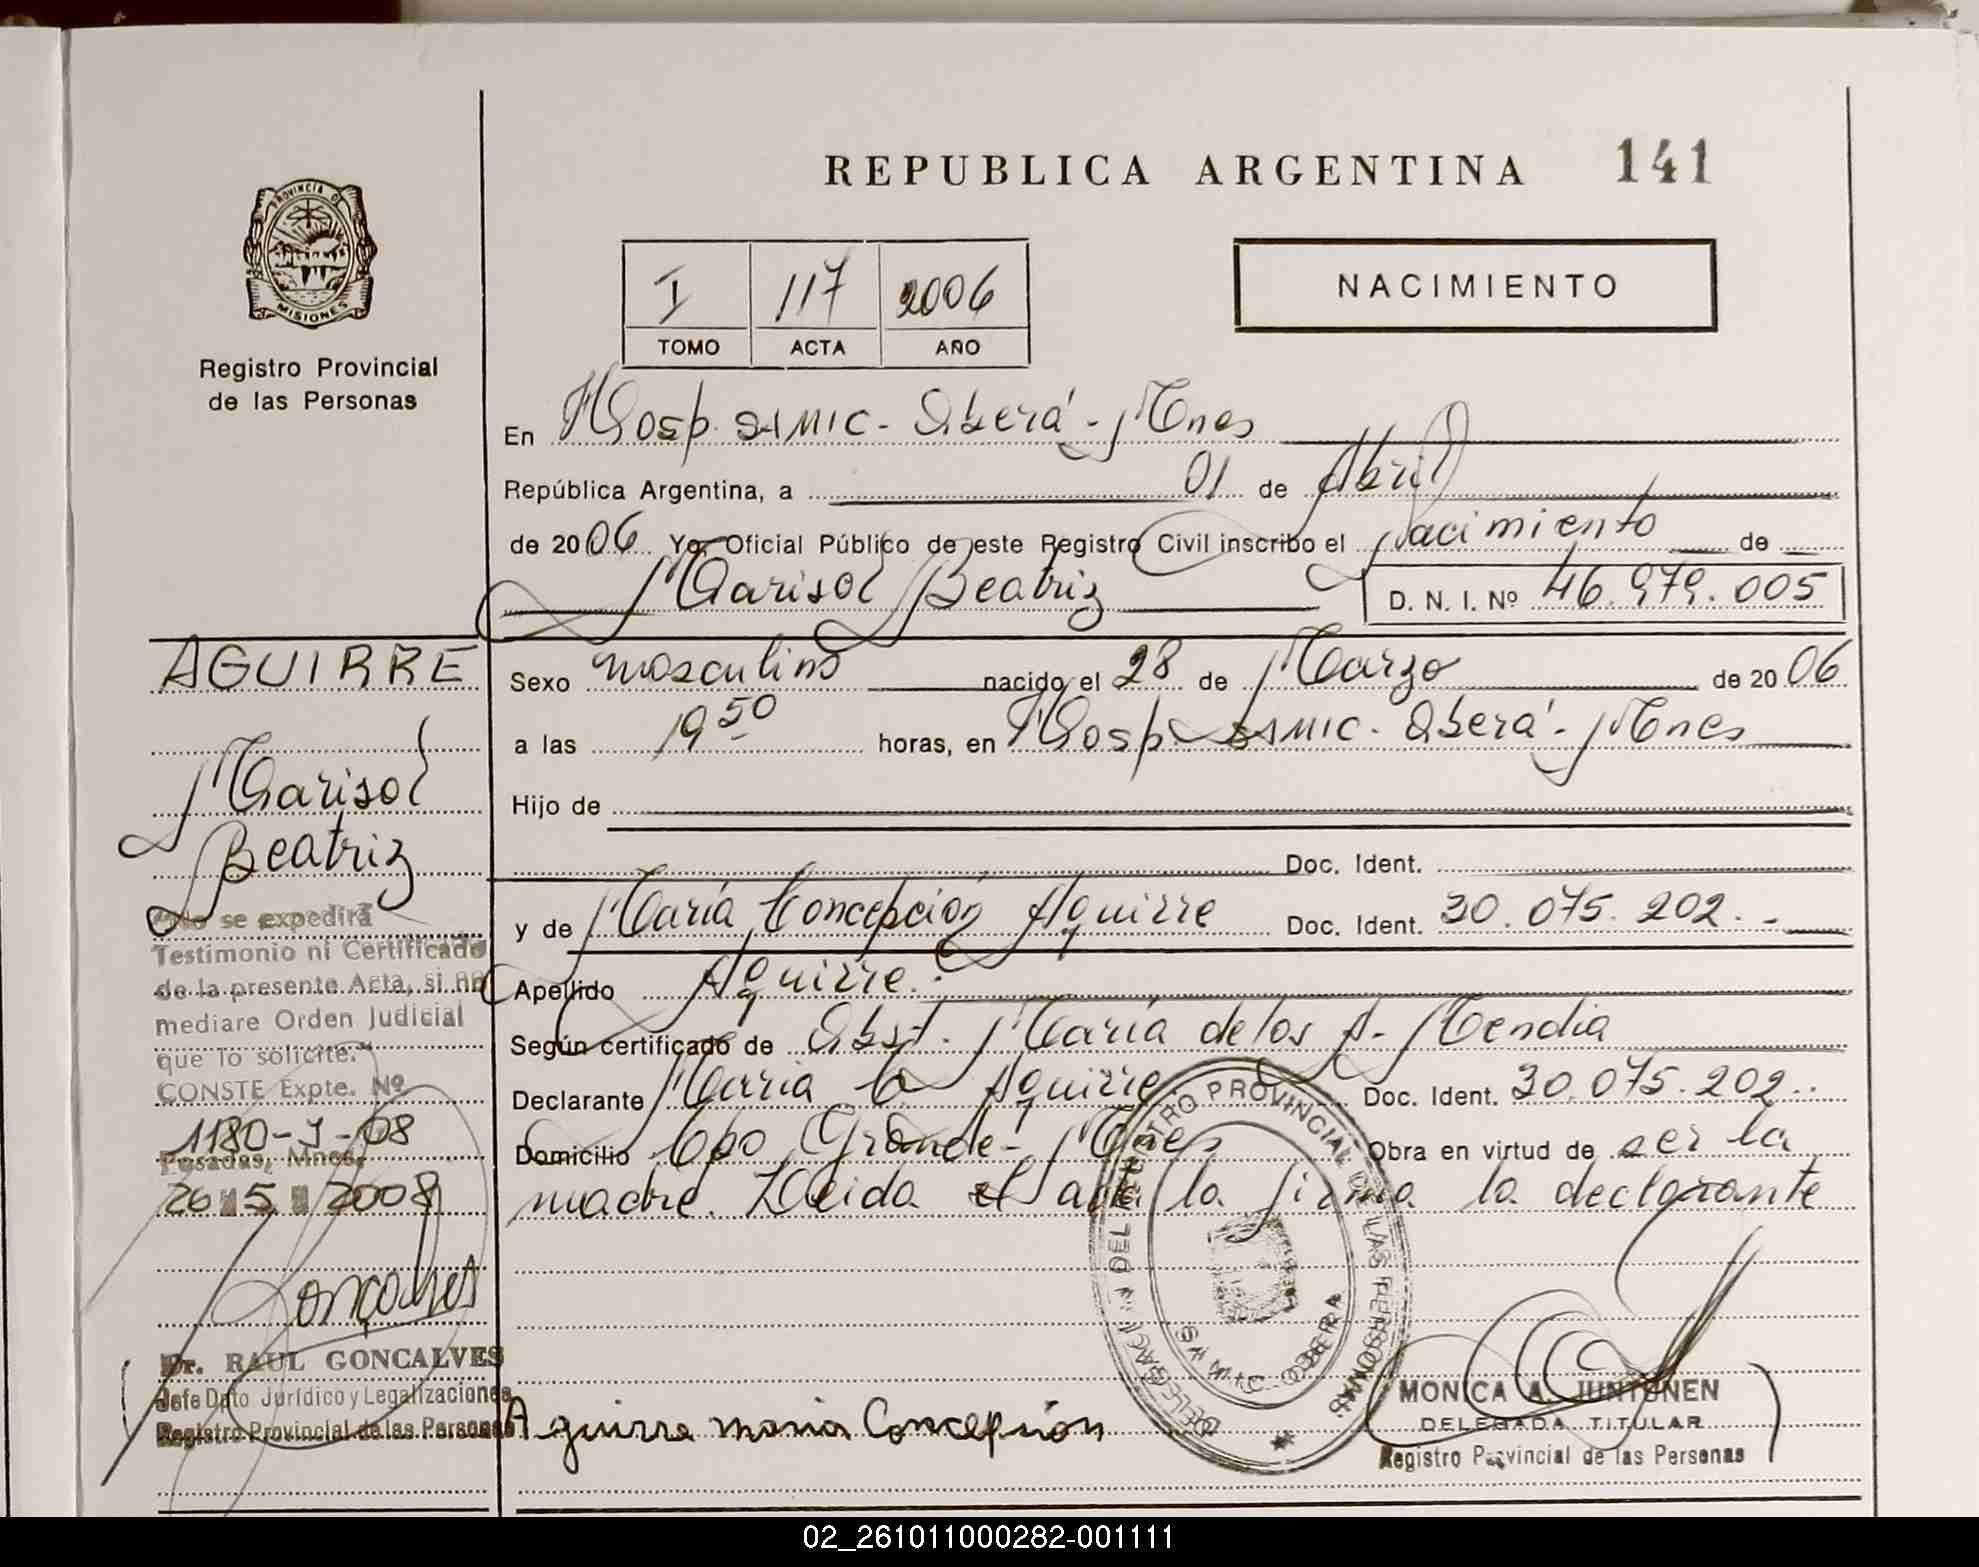 REPUBLICA ARGENTINA 141
PROVINCIA DE
MISIONES
Registro Provincial
de las Personas
I 117 2006
TOMO ACTA AÑO
NACIMIENTO
En Hosp. SAMIC - Oberá - Mnes
República Argentina, a 01 de Abril
de 2006 Yo, Oficial Público de este Registro Civil inscribo el Nacimiento de
Marisol Beatriz D. N. I. Nº 46.979.005
AGUIRRE
Marisol
Beatriz
"No se expedirá
Testimonio ni Certificado
de la presente Acta, si no
mediare Orden Judicial
que lo solicite."
CONSTE Expte. Nº
1180-J-08
Posadas, Mnes,
26 5 2008
Dr. RAUL GONCALVES
Jefe Dpto Jurídico y Legalizaciones
Registro Provincial de las Personas
Sexo masculino nacido el 28 de Marzo de 2006
a las 19 50 horas, en Hosp. SAMIC - Oberá - Mnes
Hijo de
Doc. Ident.
y de María Concepción Aguirre Doc. Ident. 30.075.202.-
Apellido Aguirre.
Según certificado de Obst. María de los A. Mendia
Declarante María C Aguirre Doc. Ident. 30.075.202.
Domicilio Cpo Grande - Mnes Obra en virtud de ser la
madre. Leida el acta la firma la declarante
DELEGACION DEL REGISTRO PROVINCIAL DE LAS PERSONAS
SAMIC - OBERA
Aguirre maria Concepción
MONICA A. JUNTUNEN
DELEGADA TITULAR
Registro Provincial de las Personas
02_261011000282-001111